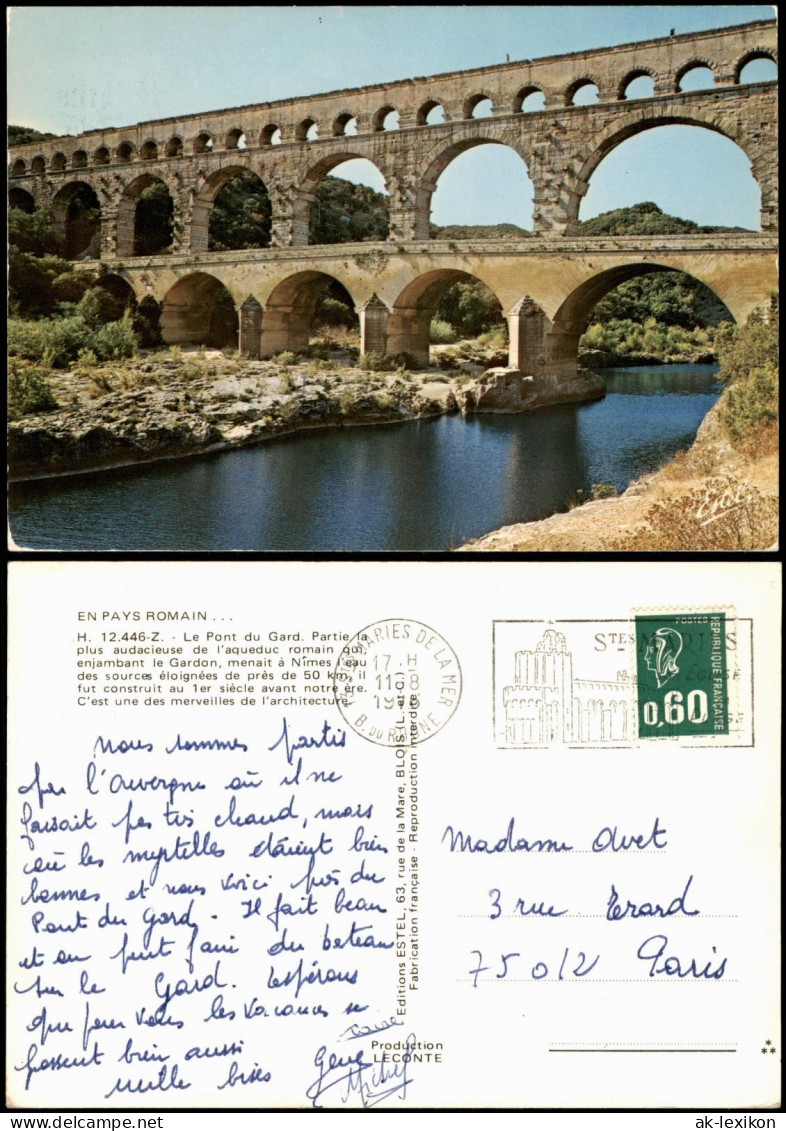 Estel
EN PAYS ROMAIN ...
H. 12.446-Z. - Le Pont du Gard. Partie la
plus audacieuse de l'aqueduc romain qui,
enjambant le Gardon, menait à Nîmes l'eau
des sources éloignées de près de 50 km, il
fut construit au 1er siècle avant notre ère.
C'est une des merveilles de l'architecture
nous sommes partis
par l'Auvergne où il ne
faisait pas très chaud, mais
où les myrtilles étaient bien
bonnes et nous voici près du
Pont du Gard. Il fait beau
et on peut faire du bateau
sur le Gard. Espérons
que pour vous les vacances se
passent bien aussi
mille bises
Michel
Editions ESTEL, 63, rue de la Mare, BLOIS (L.-et-C.)
Fabrication française - Reproduction interdite
STES MARIES DE LA MER
17 H
11-8
19
B. DU RHONE
STES MARIES
POSTES
REPUBLIQUE FRANÇAISE
0,60
Madame Avet
3 rue Erard
75012 Paris
Production
LECONTE
ak-ansichtskarten.de
ak-lexikon